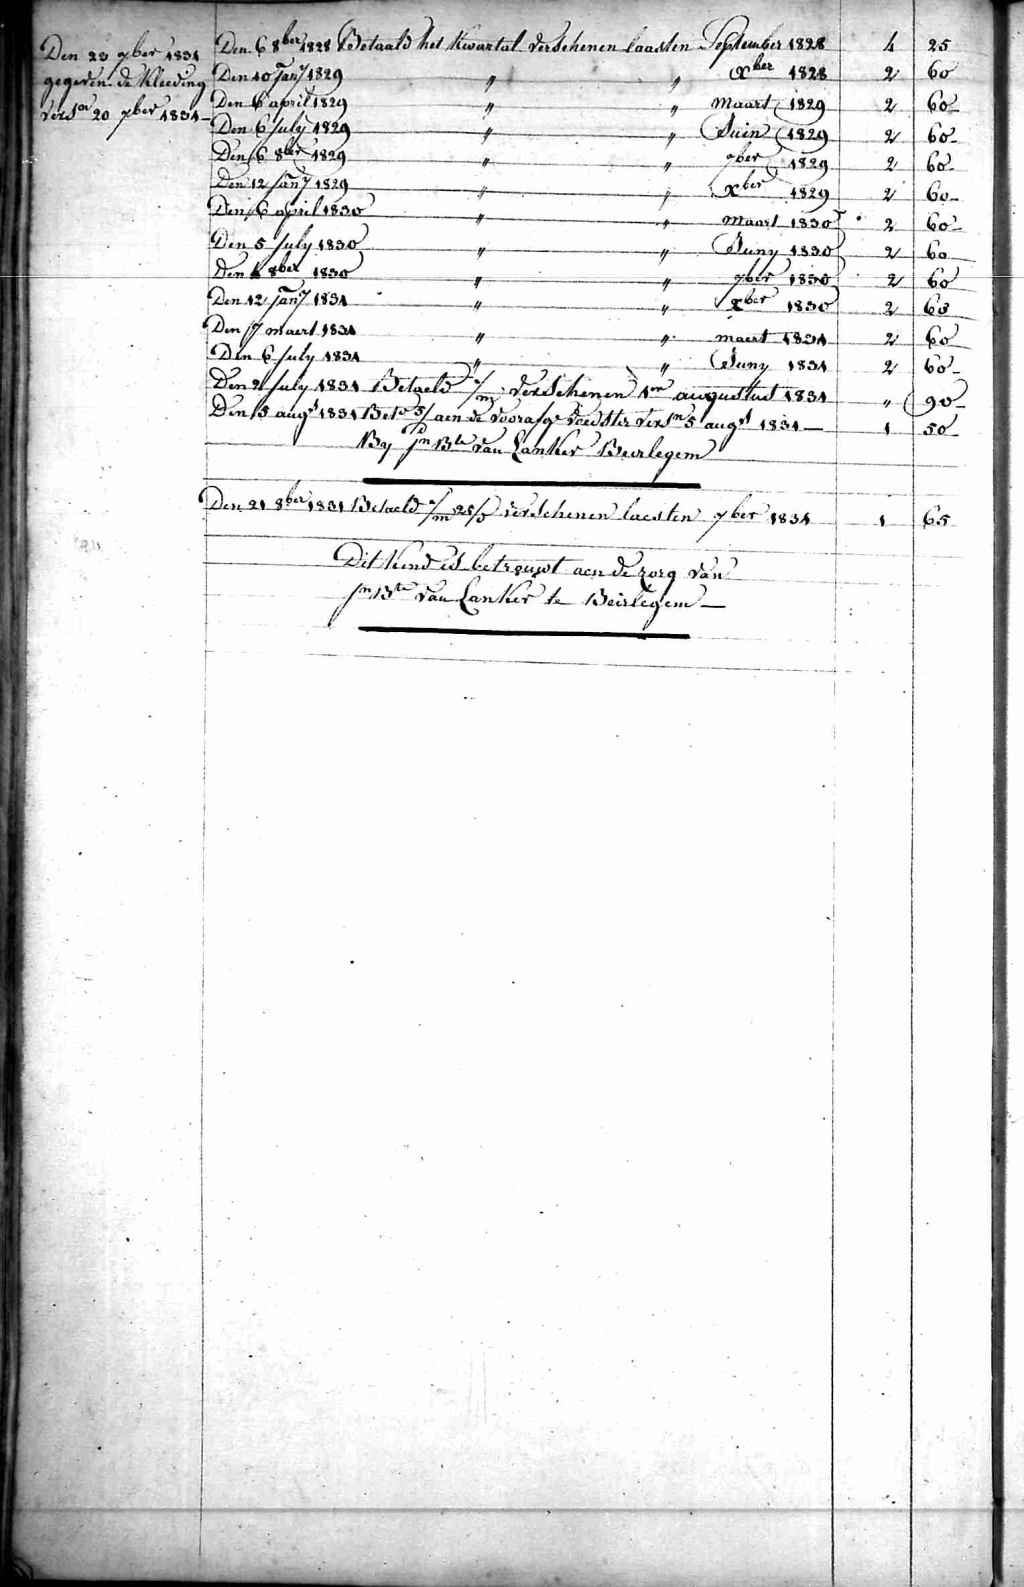 Den 23 7ber 1831
gegeven de Kleeding
versn 20 7ber 1831 –
Den 6 8ber 1828 Betaald het Kwartal verschenen laasten September 1828 4 25
Den 10 Jany 1829 " " Xber 1828 2 60
Den 6 april 1829 " " Maart 1829 2 60
Den 6 July 1829 " " Juin 1829 2 60
Den 6 8ber 1829 " " 7ber 1829 2 60
Den 12 Jany 1829 " " Xber 1829 2 60
Den 6 april 1830 " " Maart 1830 2 60
Den 5 July 1830 " " Juny 1830 2 60
Den 8ber 1830 " " 7ber 1830 2 60
Den 12 Jany 1831 " " Xber 1830 2 60
Den 7 maert 1831 " " maert 1831 2 60
Den 6 July 1831 " " Juny 1831 2 60
Den July 1831 Betaeld verschenen 1en augustus 1831 " 90
Den 5 augt 1831 aen de voorafge voedster versn 5 augt 1831 – 1 50
By Jn Bte van Lanker Beirlegem
Den 21 8ber 1831 Betaeld verschenen laesten 7ber 1831 1 65
Dit Kind is betrouwt aen de zorg van
Jn Bte van Lanker te Beirlegem –